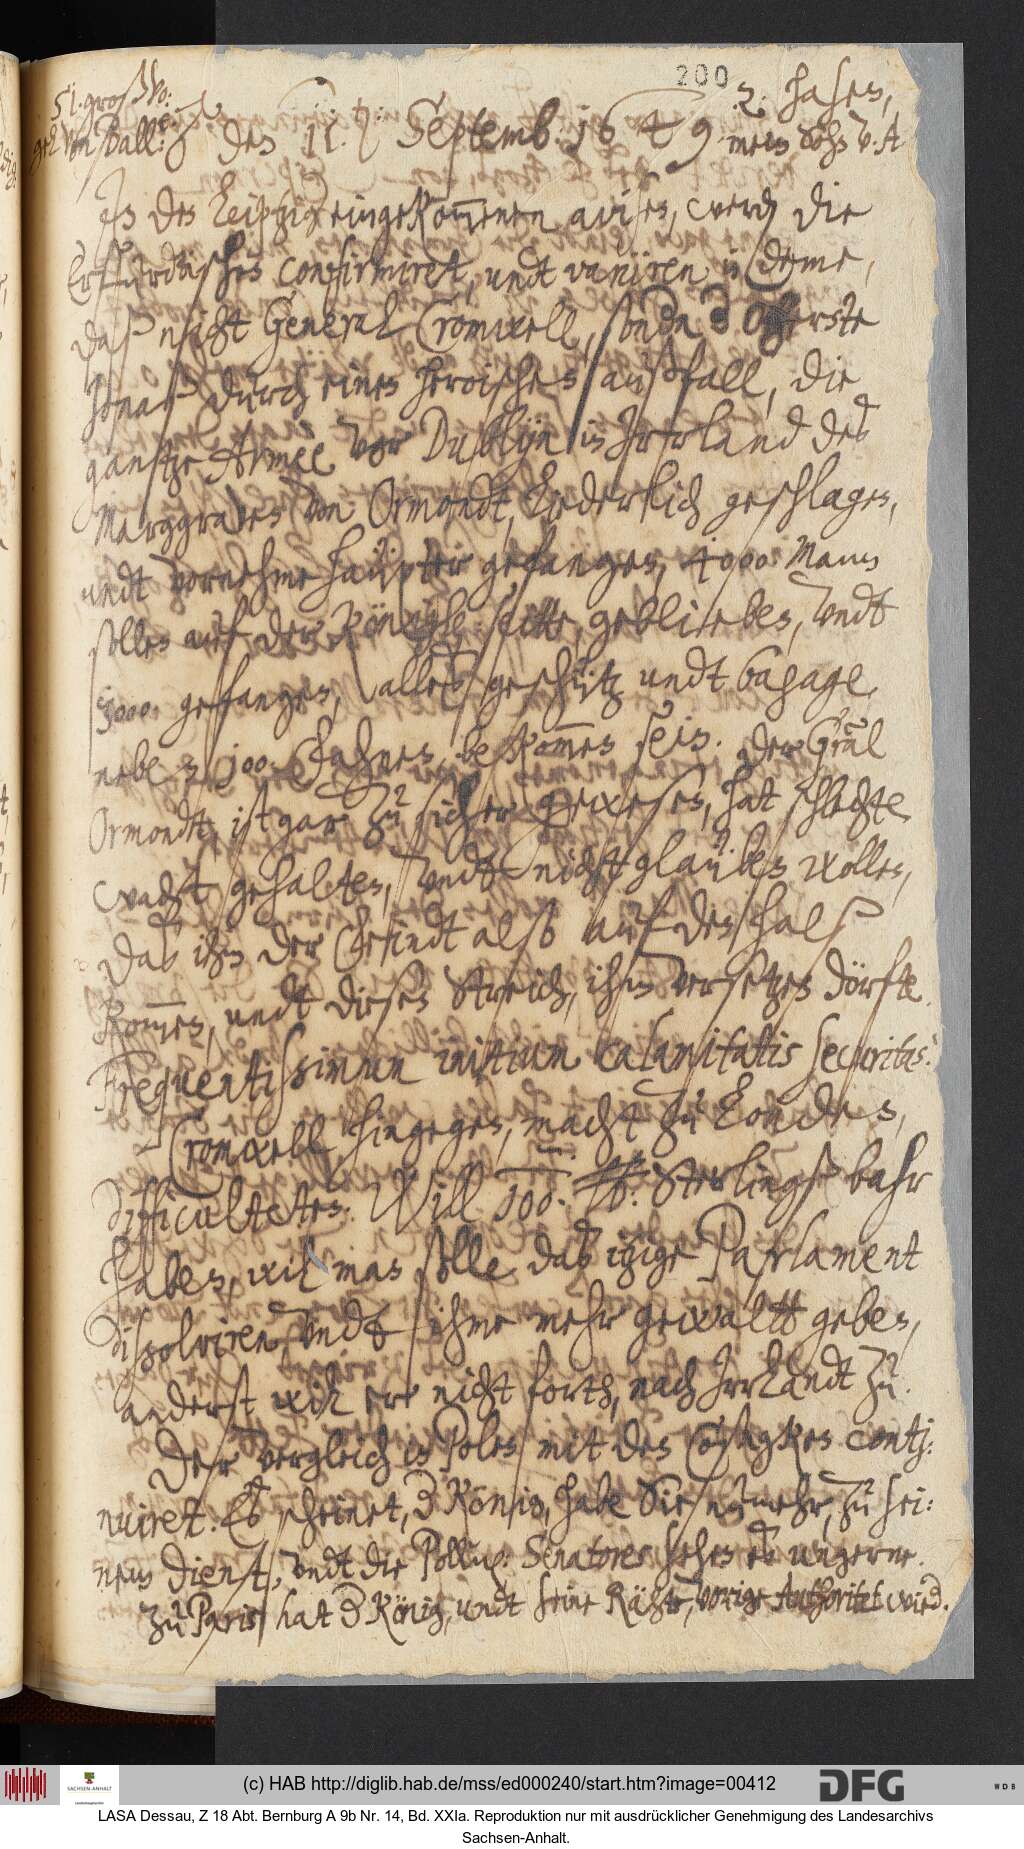 200
2. hasen,
51. groß Vo:
gel von Ball:
den 11. Septemb. 1649
mein Sohn V. A
In den Leiptzig eingekommenen avisen, werden die
Erfurdtischen confirmiret, undt variiren in deme,
daß nicht General Cromwell, sondern der Oberste
Jonas durch einen heroischen außfall, die
gantze Armèe vor Dublijn in Irrland des
Marggraven von Ormondt, Liederlich geschlagen,
undt vornehme haüpter gefangen, 4000 Mann
sollen auf der Königl. seitte, geblieben, undt
3000. gefangen, alles geschütz undt bagage,
neben 100. Fahnen, bekommen sein. der Gral
Ormondt, ist gar zu sicher gewesen, hat schlechte
wacht gehalten, undt nicht glauben wollen,
das ihm der Feindt also auf den halß
kommen, undt diesen streich, ihm versetzen dörfte.
Frequentissimum initium calamitatis securitas.
Cromwell hingegen, macht zu Londen,
difficulteten. Will 100. Tb: Sterlingß bahr
haben, will man solle das itzige Parlament
dissolviren, undt ihme mehr gewaltt geben,
anderst will er nicht forth, nach Irrlandt zu.
Der vergleich in Polen mit den Cosagken conti¬
nuiret. Es scheinet, der König, habe Sie nunmehr, zu sei¬
nem dienst, undt die Polln: Senatores sehen es ungerne.
Zu Paris hat der König, undt seine Rähte, vorige Authoritet wied.
(c) HAB http://diglib.hab.de/mss/ed000240/start.htm?image=00412
SACHSEN-ANHALT
DFG
WDB
LASA Dessau, Z 18 Abt. Bernburg A 9b Nr. 14, Bd. XXIa. Reproduktion nur mit ausdrücklicher Genehmigung des Landesarchivs
Sachsen-Anhalt.